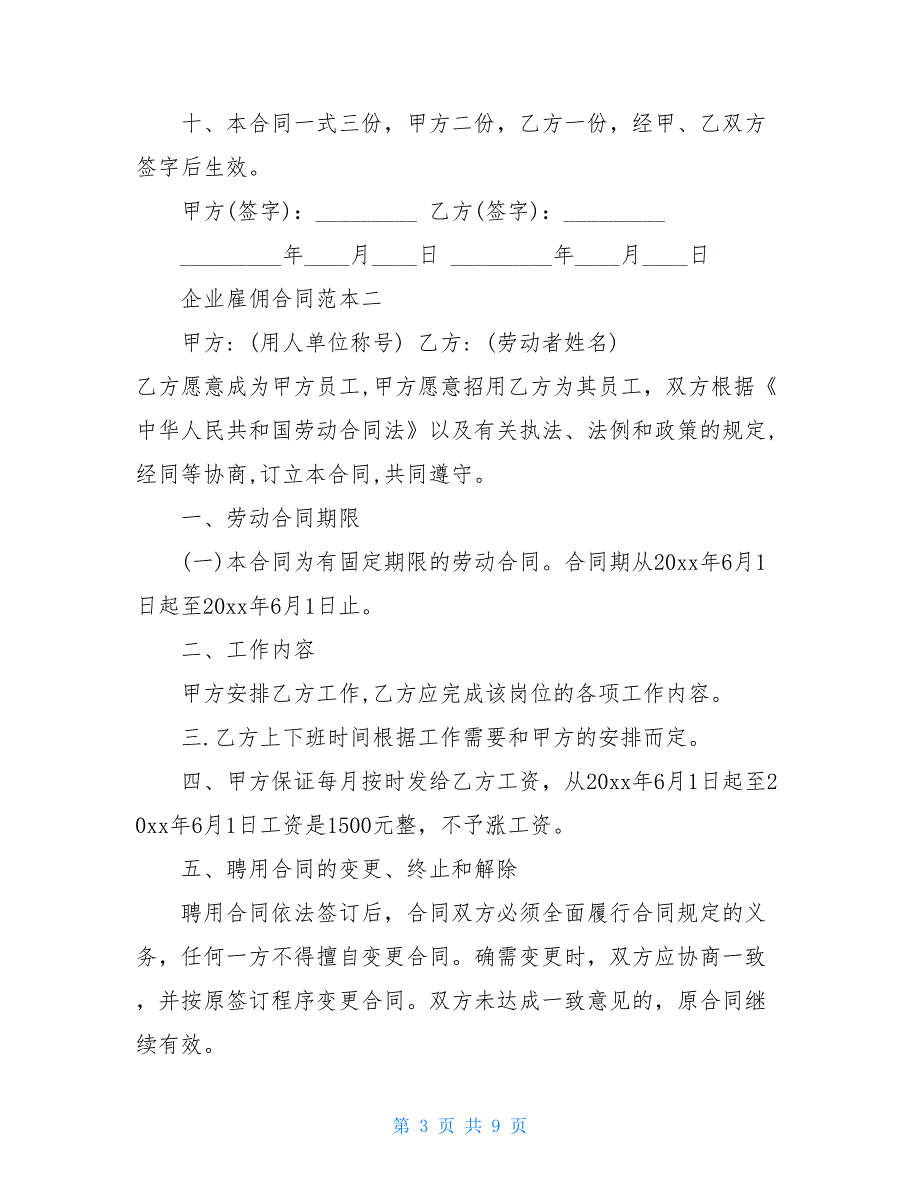 十、本合同一式三份，甲方二份，乙方一份，经甲、乙双方
签字后生效。
甲方(签字)：_________ 乙方(签字)：_________
_________年____月____日 _________年____月____日
企业雇佣合同范本二
甲方: (用人单位称号) 乙方: (劳动者姓名)
乙方愿意成为甲方员工,甲方愿意招用乙方为其员工，双方根据《
中华人民共和国劳动合同法》以及有关执法、法例和政策的规定,
经同等协商,订立本合同,共同遵守。
一、劳动合同期限
(一)本合同为有固定期限的劳动合同。合同期从20xx年6月1
日起至20xx年6月1日止。
二、工作内容
甲方安排乙方工作,乙方应完成该岗位的各项工作内容。
三.乙方上下班时间根据工作需要和甲方的安排而定。
四、甲方保证每月按时发给乙方工资，从20xx年6月1日起至2
0xx年6月1日工资是1500元整，不予涨工资。
五、聘用合同的变更、终止和解除
聘用合同依法签订后，合同双方必须全面履行合同规定的义
务，任何一方不得擅自变更合同。确需变更时，双方应协商一致
，并按原签订程序变更合同。双方未达成一致意见的，原合同继
续有效。
第 3 页 共 9 页